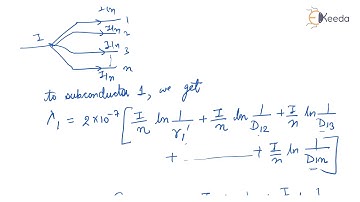 I/n 1
I I/n 2
I/n 3
I/n n
Ekeeda
to subconductor 1, we get
λ₁ = 2×10⁻⁷ [ I/n ln 1/r₁' + I/n ln 1/D₁₂ + I/n ln 1/D₁₃
+ ............ + I/n ln 1/D₁n ]